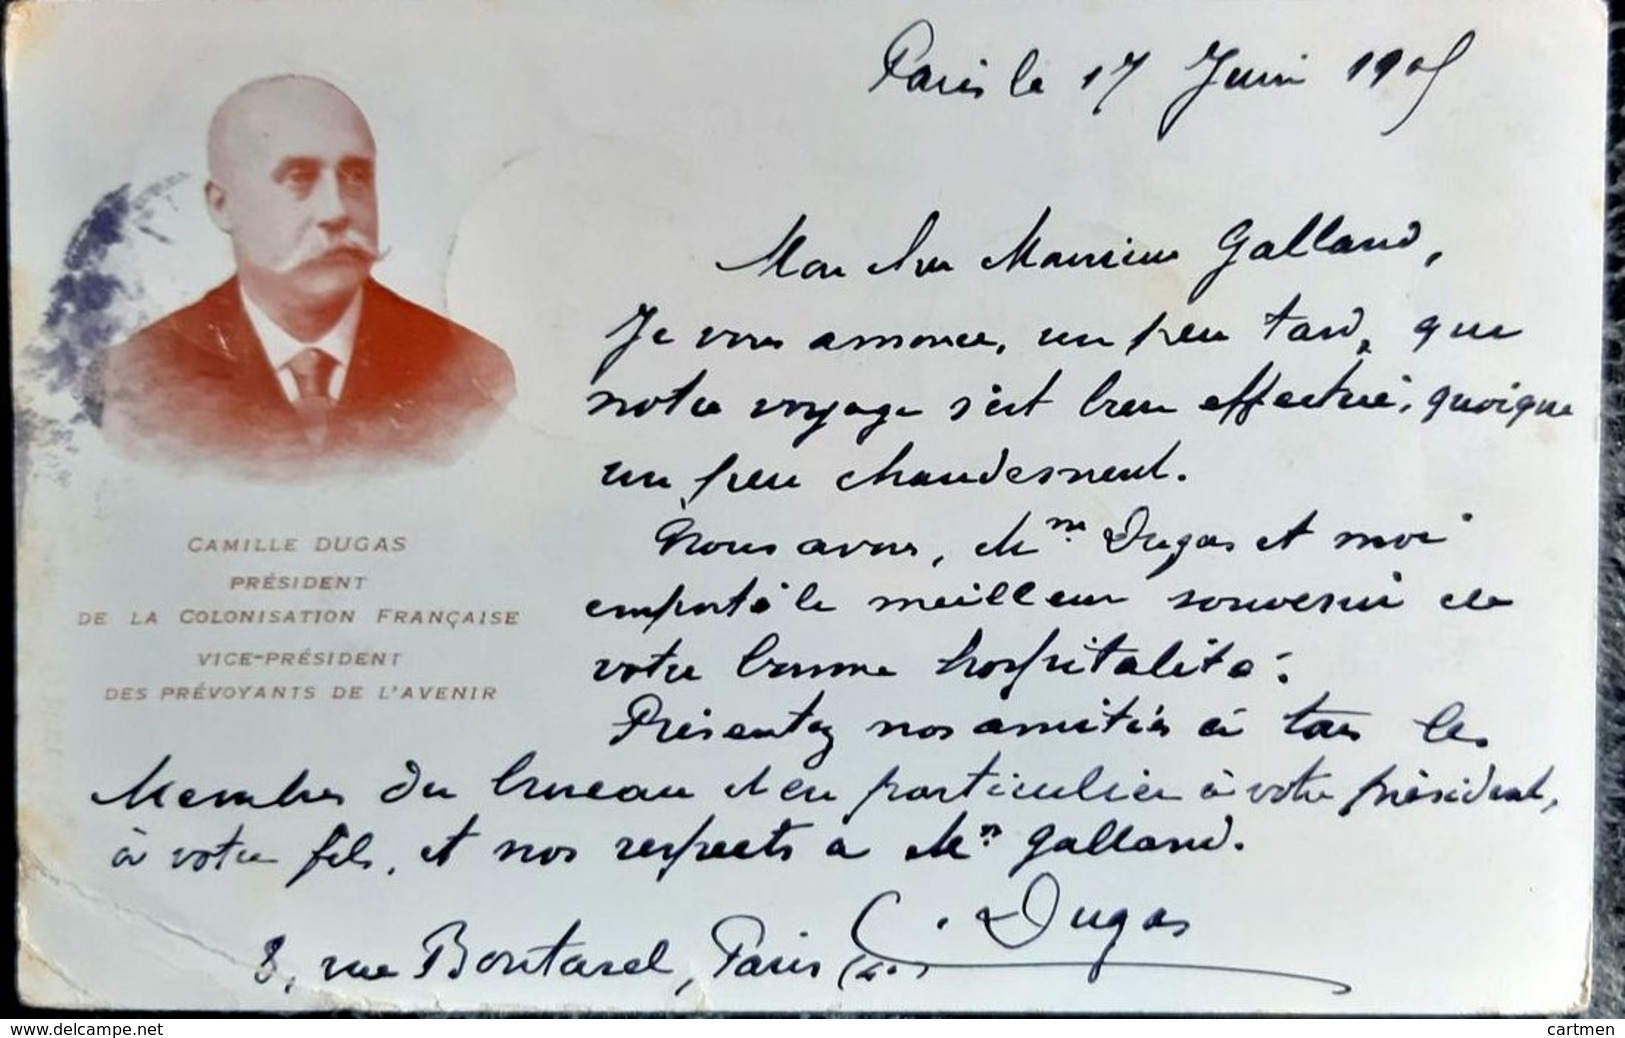 Paris le 17 Juin 1905
Mon cher Monsieur Galland,
Je vous annonce, un peu tard, que
notre voyage s'est bien effectué, quoique
un peu chaudement.
Nous avons, Mme Dugas et moi
emporté le meilleur souvenir de
votre bonne hospitalité.
Présentez nos amitiés à tous les
Membres du bureau et en particulier à votre président,
à votre fils, et nos respects a Me Galland.
C. Dugas
8, rue Boutarel, Paris (4e)
CAMILLE DUGAS
PRÉSIDENT
DE LA COLONISATION FRANÇAISE
VICE-PRÉSIDENT
DES PRÉVOYANTS DE L'AVENIR
www.delcampe.net
cartmen